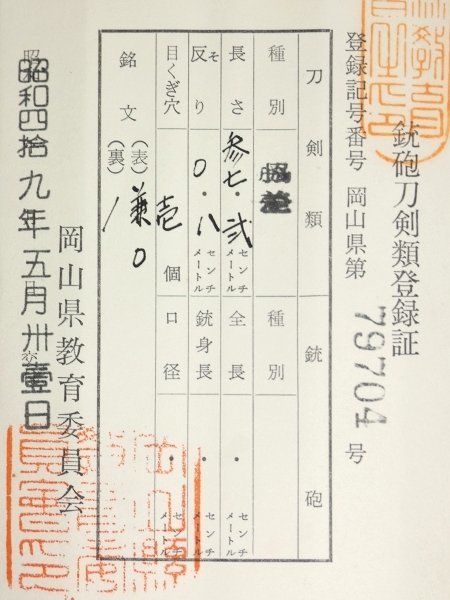 銃砲刀剣類登録証
登録記号番号 岡山県第 79704 号
刀剣類
銃砲
種別 脇差
種別
長さ 参七・弐 センチメートル
全長 ・ センチメートル
反り そ 〇・八 センチメートル
銃身長 ・ センチメートル
目くぎ穴 壱 個
口径 ・ センチメートル
銘文 (表) 兼〇
(裏) /
岡山県教育委員会
昭和四拾九年五月卅壹日 交